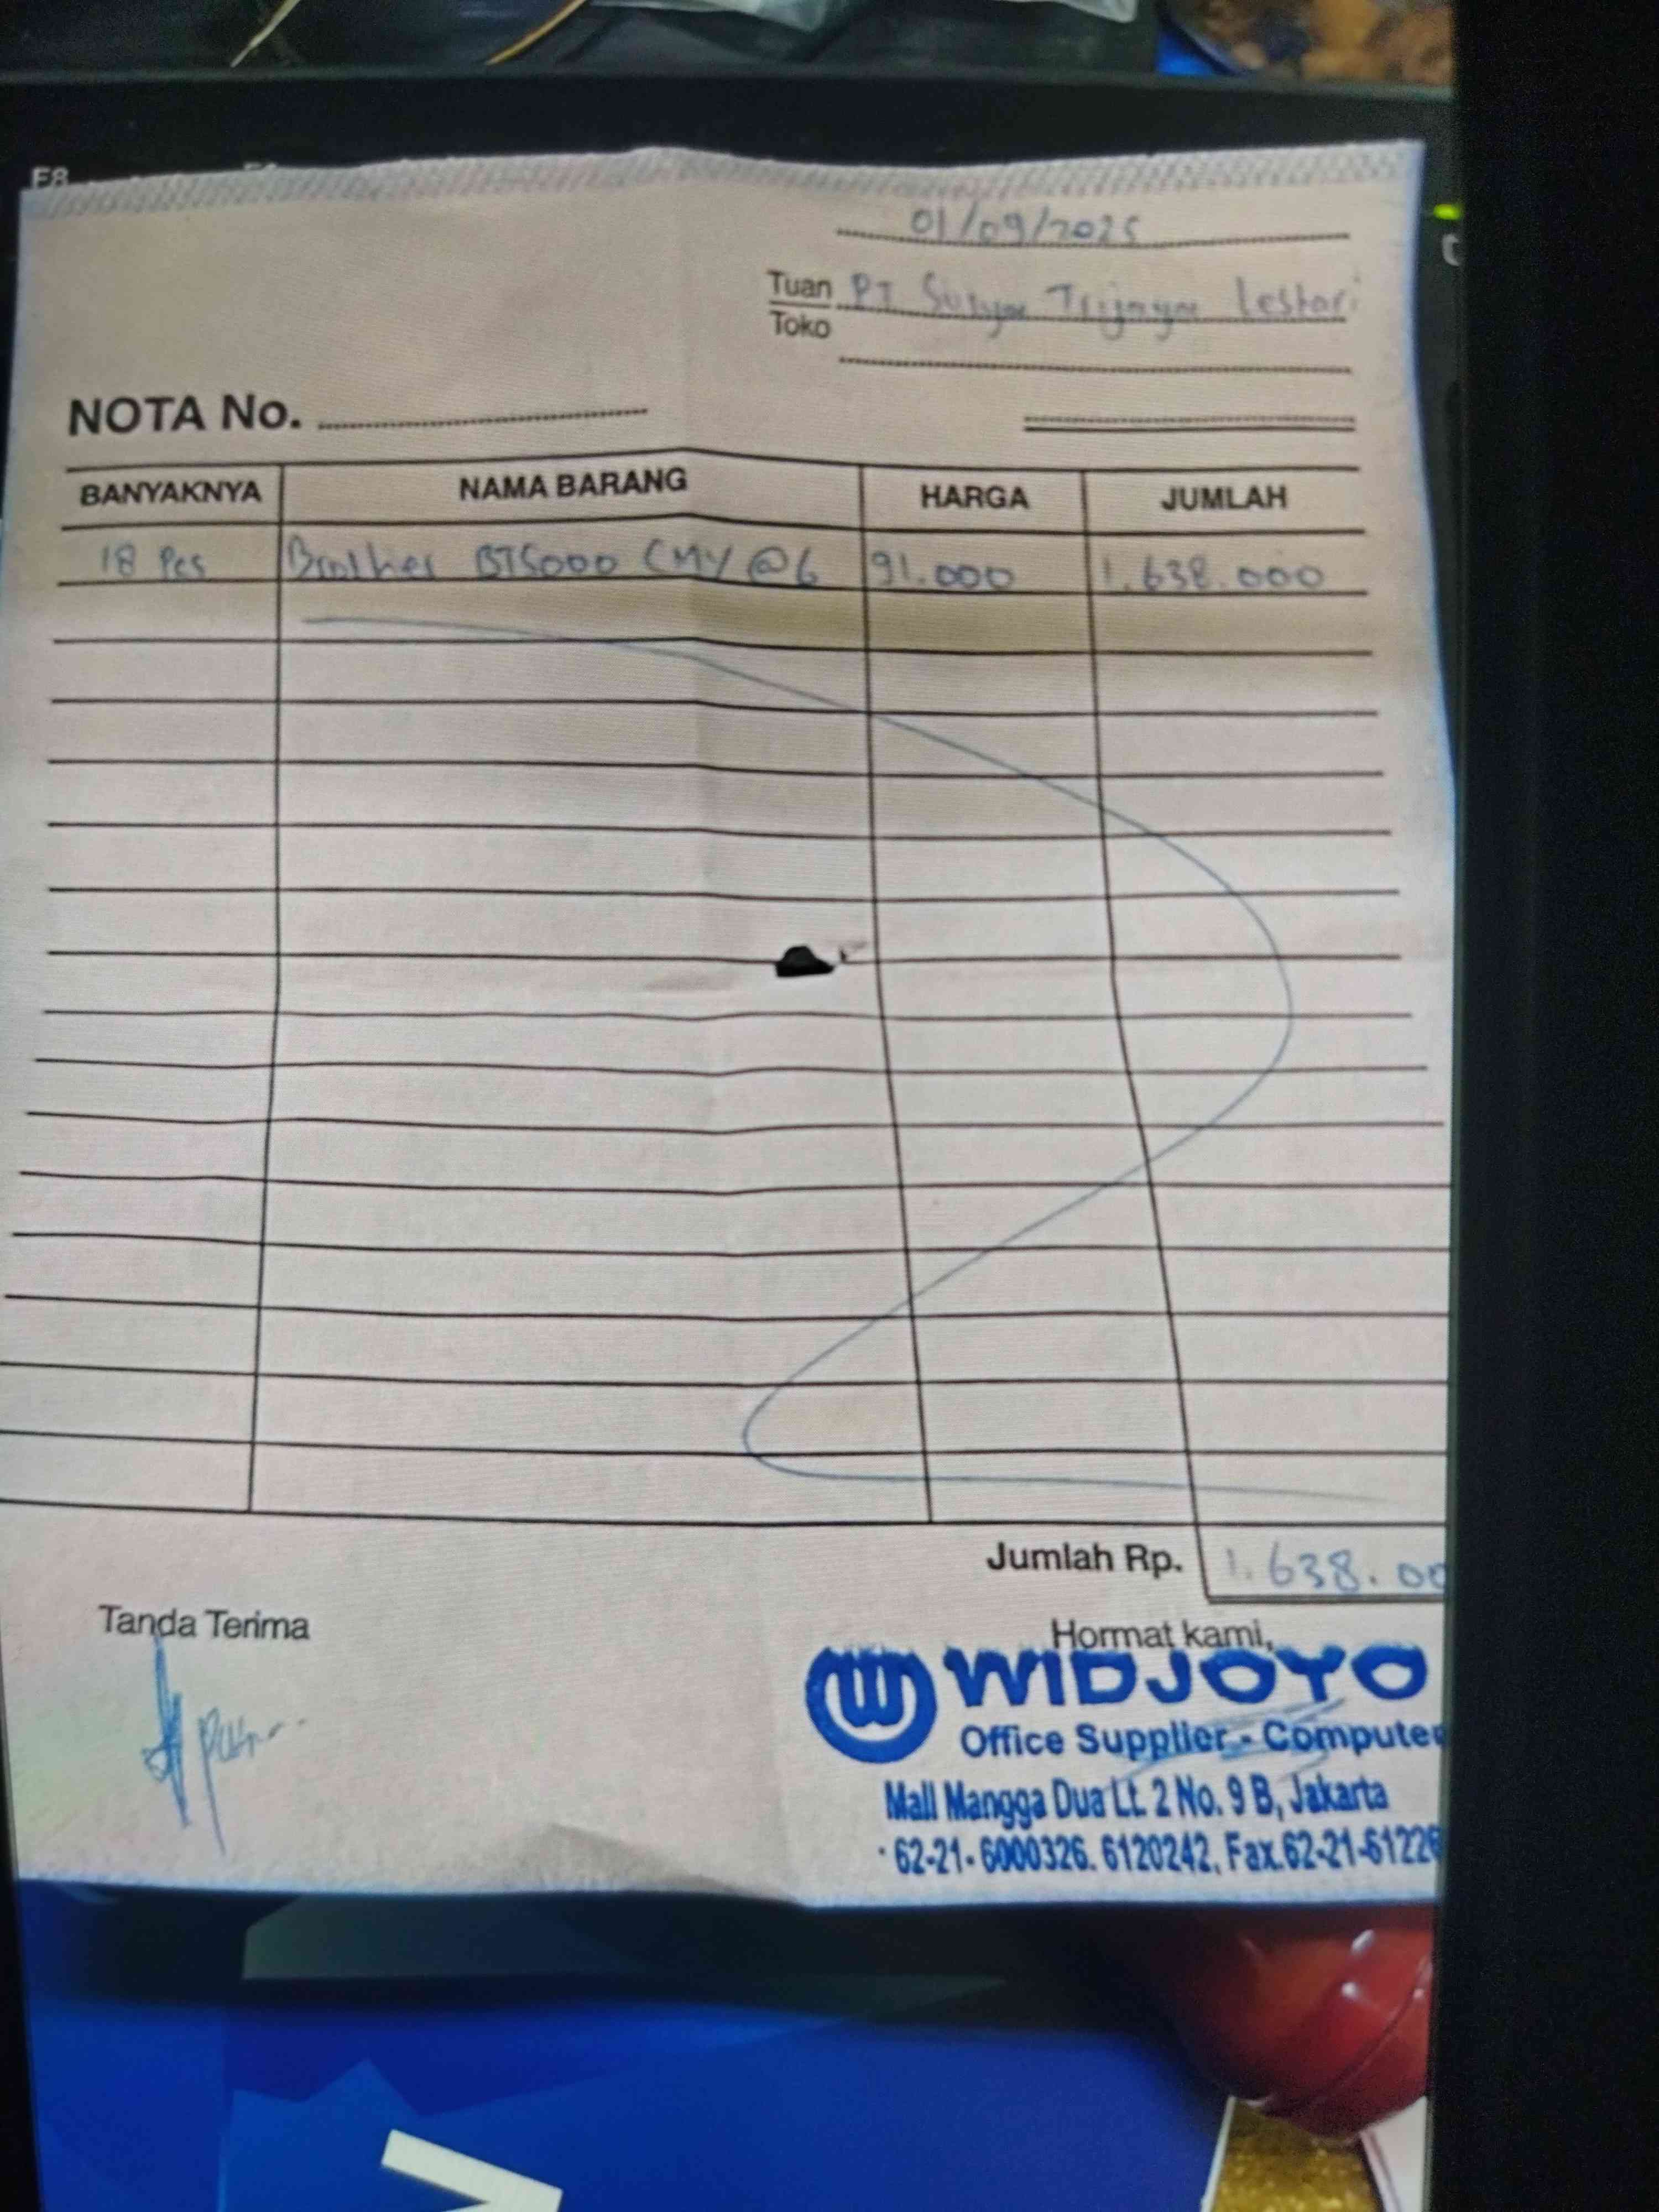 F8
01/09/2025
Tuan PT Surya Trijaya Lestari
Toko
NOTA No.
BANYAKNYA NAMA BARANG HARGA JUMLAH
18 Pcs Brother BT5000 CMY @6 91.000 1.638.000
Jumlah Rp. 1.638.00
Tanda Terima Hormat kami,
WIDJOYO
Office Supplier - Computer
Mall Mangga Dua Lt. 2 No. 9 B, Jakarta
62-21-6000326. 6120242, Fax.62-21-61226